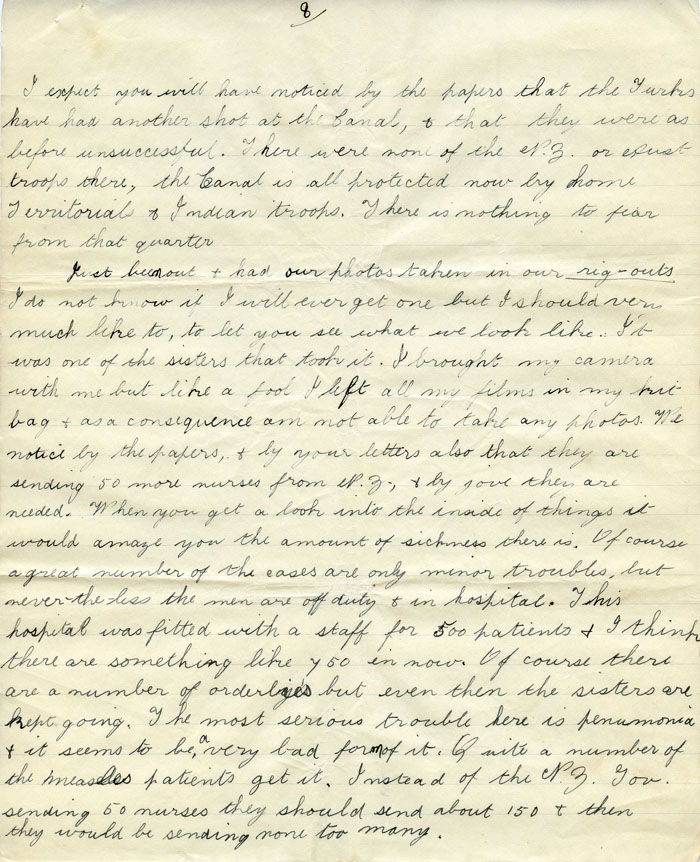 8
I expect you will have noticed by the papers that the Turks
have had another shot at the Canal, & that they were as
before unsuccessful. There were none of the N.Z. or Aust
troops there, the Canal is all protected now by home
Territorial & Indian troops. There is nothing to fear
from that quarter
Just been out + had our photos taken in our rig-outs
I do not know if I will ever get one but I should very
much like to, to let you see what we look like. It
was one of the sisters that took it. I brought my camera
with me but like a fool I left all my films in my kit
bag & as a consequence am not able to take any photos. We
notice by the papers, & by your letters also that they are
sending 50 more nurses from N.Z., & by jove they are
needed. When you get a look into the inside of things it
would amaze you the amount of sickness there is. Of course
a great number of the cases are only minor troubles, but
never-the-less the men are off duty & in hospital. This
hospital was fitted with a staff for 500 patients & I think
there are something like 750 in now. Of course there
are a number of orderlies but even then the sisters are
kept going. The most serious trouble here is penumonia
& it seems to be, a very bad form of it. Quite a number of
the measles patients get it. Instead of the N.Z. Gov.
sending 50 nurses they should send about 150 & then
they would be sending none too many.